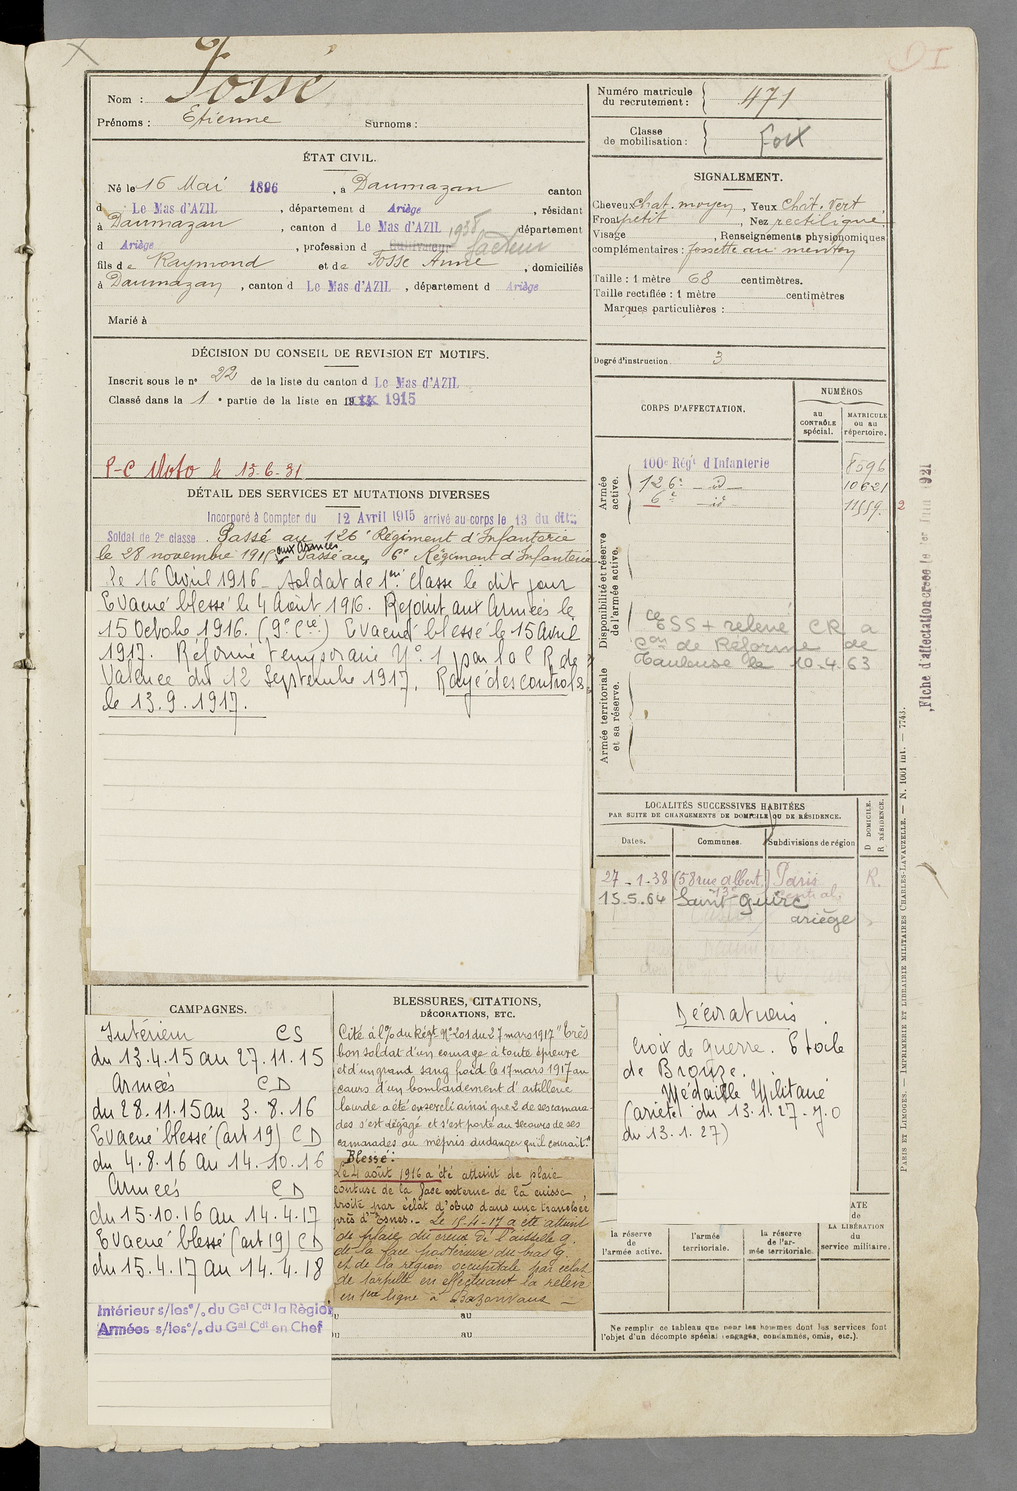 Nom : Fossé
Prénoms : Etienne Surnoms :
ÉTAT CIVIL.
Né le 16 Mai 1896, à Daumazan canton
d Le Mas d'AZIL, département d Ariège, résidant
à Daumazan, canton d Le Mas d'AZIL 1938, département
d Ariège, profession d Cultivateur facteur
fils de Raymond et de Fosse Anne, domiciliés
à Daumazan, canton d Le Mas d'AZIL, département d Ariège
Marié à
DÉCISION DU CONSEIL DE REVISION ET MOTIFS.
Inscrit sous le n° 22 de la liste du canton d Le Mas d'AZIL
Classé dans la 1e partie de la liste en 1915
P-C Moto le 15-6-31
DÉTAIL DES SERVICES ET MUTATIONS DIVERSES
Incorporé à Compter du 12 Avril 1915 arrivé au corps le 13 du dit
Soldat de 2e classe. Passé au 126e Régiment d'Infanterie
le 28 novembre 1915 aux Armées Passé au 6e Régiment d'Infanterie
le 16 Avril 1916 Soldat de 1ère Classe le dit jour
Evacué blessé le 4 Août 1916. Rejoint aux Armées le
15 Octobre 1916. (9e Cie) Evacué blessé le 15 Avril
1917. Réformé temporaire N° 1 par la C R de
Valence du 12 Septembre 1917. Rayé des controls
le 13.9.1917.
CAMPAGNES.
Intérieur CS
du 13.4.15 au 27.11.15
Armées CD
du 28.11.15 au 3.8.16
Evacué blessé (art 19) CD
du 4.8.16 au 14.10.16
Armées CD
du 15.10.16 au 14.4.17
Evacué blessé (art 19) CD
du 15.4.17 au 14.4.18
Intérieur s/les o/. du Gal Cdt la Région
Armées s/les o/. du Gal Cdt en Chef
BLESSURES, CITATIONS,
DÉCORATIONS, ETC.
Cité à l'O/ du Régt N° 201 du 27 mars 1917 "Très
bon soldat d'un courage à toute épreuve
et d'un grand sang froid le 17 mars 1917 au
cours d'un bombardement d'artillerie
lourde a été enseveli ainsi que 2 de ses camara-
des s'est dégagé et s'est porté au secours de ses
camarades au mépris du danger qu'il courait."
Blessé :
Le 4 août 1916 a été atteint de plaie
contuse de la face externe de la cuisse
droite par éclat d'obus dans une tranchée
près d'Esnes. - Le 15-4-17 a été atteint
de plaie du creux de l'aisselle g.
de la face postérieure du bras G.
et de la région occipitale par éclat
de torpille en effectuant la relève
en 1ère ligne à Bezonvaux
au
au
Numéro matricule
du recrutement : 471
Classe
de mobilisation : Foix
SIGNALEMENT.
Cheveux Chat. moyen, Yeux Chât. Vert
Front petit, Nez rectiligne
Visage, Renseignements physionomiques
complémentaires : fossette au menton
Taille : 1 mètre 68 centimètres.
Taille rectifiée : 1 mètre centimètres
Marques particulières :
Degré d'instruction. 3
CORPS D'AFFECTATION.
NUMÉROS
au CONTRÔLE spécial.
MATRICULE ou au répertoire.
Armée active.
100e Régt d'Infanterie 8596
126e d° 10621
6e d° 11559. 2
Disponibilité et réserve de l'armée active.
Ce SS + relevé CR a
Con de Réforme de
Toulouse le 10.4.63
Armée territoriale et sa réserve.
LOCALITÉS SUCCESSIVES HABITÉES
PAR SUITE DE CHANGEMENTS DE DOMICILE OU DE RÉSIDENCE.
Dates. Communes. Subdivisions de région
D DOMICILE.
R RÉSIDENCE.
27-1-38 (58 rue albert) Paris R.
13e Central.
15.5.64 Saint Quirc
ariège
Décorations
Croix de Guerre. Etoile
de Bronze.
Médaille Militaire
(arrêté du 13.1.27 - J.O
du 13.1.27)
DATE
de
LA LIBÉRATION
du
service militaire.
la réserve
de
l'armée active.
l'armée
territoriale.
la réserve
de l'ar-
mée territoriale.
Ne remplir ce tableau que pour les hommes dont les services font
l'objet d'un décompte spécial (engagés, condamnés, omis, etc.).
PARIS ET LIMOGES. — IMPRIMERIE ET LIBRAIRIE MILITAIRES CHARLES-LAVAUZELLE. — N. 1001 int. — 7743.
Fiche d'affectation créée le 1er Juin 1921